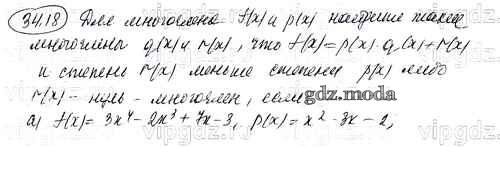 34.18 Для многочлена f(x) и p(x) найдите такие
многочлены q(x) и r(x), что f(x)=p(x)·q(x)+r(x)
и степень r(x) меньше степени p(x) либо
r(x) - нуль - многочлен, если
gdz.moda
а) f(x)= 3x⁴ - 2x³ + 7x - 3, p(x)= x² - 3x - 2;